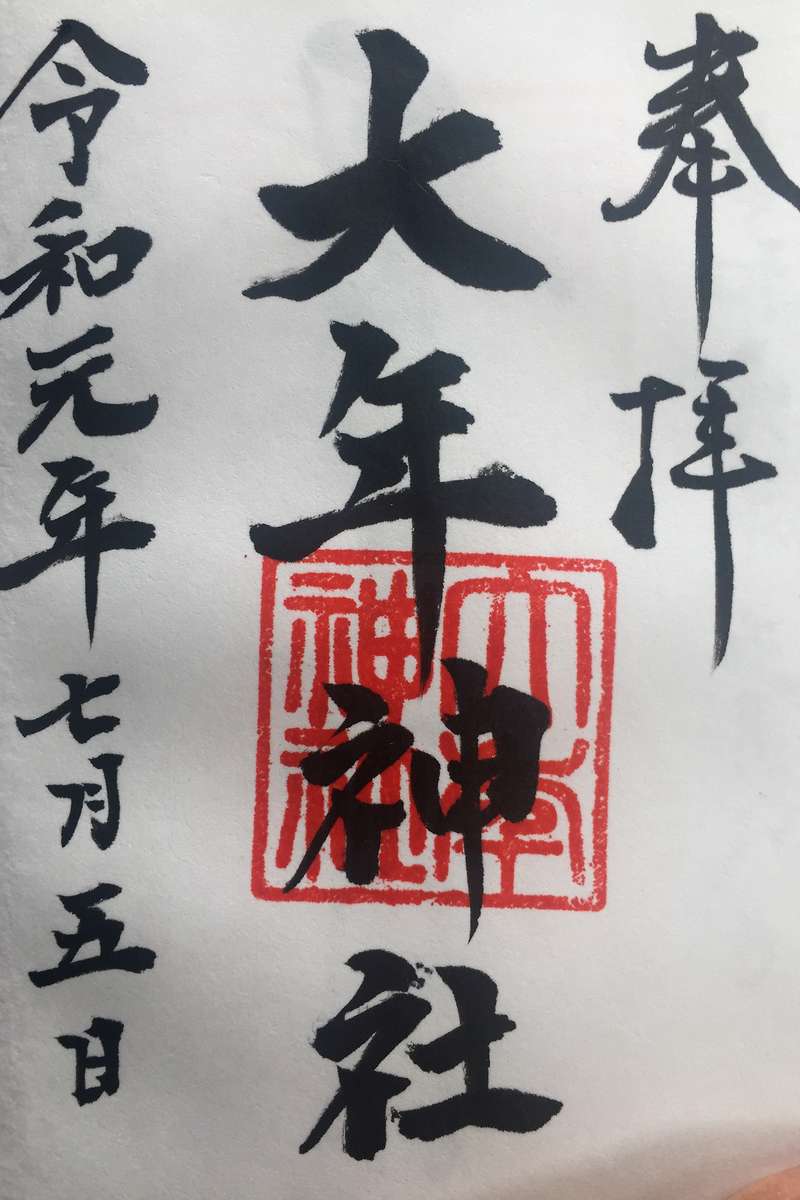 奉拝
大年神社
大年神社
令和元年七月五日